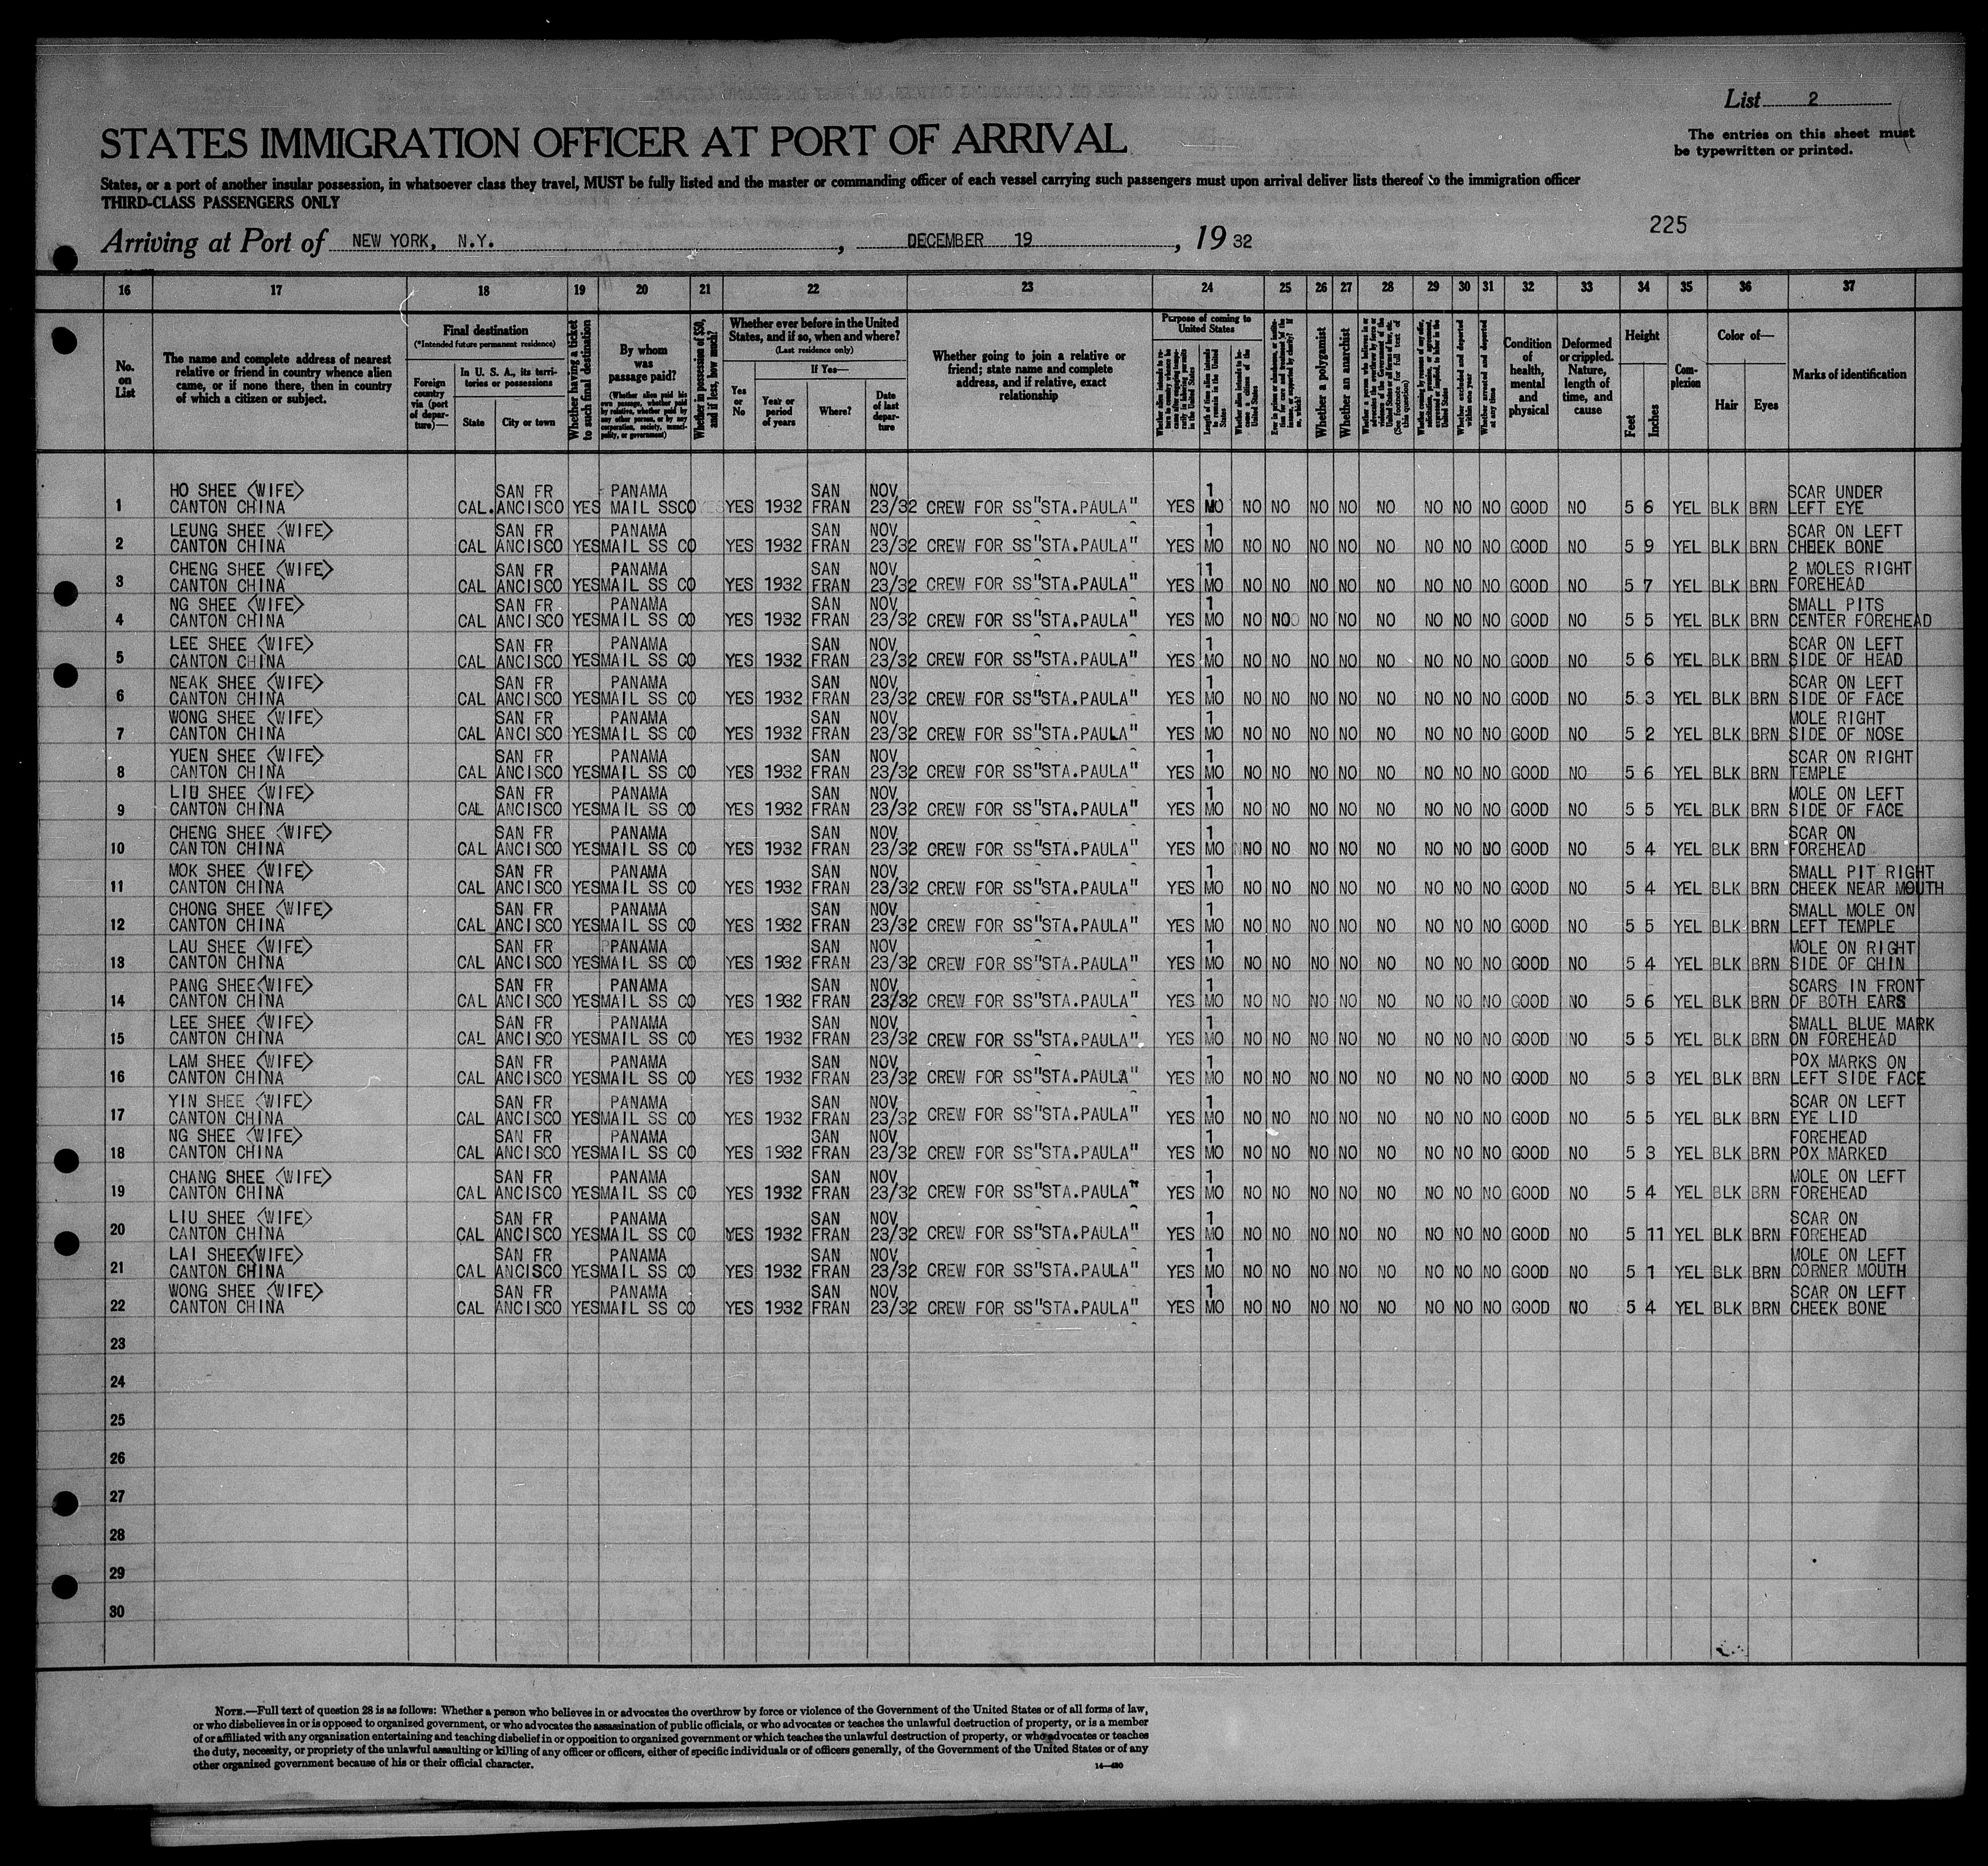 List 2
The entries on this sheet must
be typewritten or printed.
STATES IMMIGRATION OFFICER AT PORT OF ARRIVAL
States, or a port of another insular possession, in whatsoever class they travel, MUST be fully listed and the master or commanding officer of each vessel carrying such passengers must upon arrival deliver lists thereof to the immigration officer
THIRD-CLASS PASSENGERS ONLY
225
Arriving at Port of NEW YORK, N.Y. , DECEMBER 19 , 19 32
16 17 18 19 20 21 22 23 24 25 26 27 28 29 30 31 32 33 34 35 36 37
No. on List
The name and complete address of nearest relative or friend in country whence alien came, or if none there, then in country of which a citizen or subject.
Final destination
(*Intended future permanent residence)
Foreign country via (port of departure)—
In U. S. A., its territories or possessions
State City or town
Whether having a ticket to such final destination
By whom was passage paid?
(Whether alien paid his own passage, whether paid by relative, whether paid by any other person, or by any corporation, society, municipality, or government)
Whether in possession of $50, and if less, how much?
Whether ever before in the United States, and if so, when and where?
(Last residence only)
Yes or No
If Yes—
Year or period of years
Where?
Date of last departure
Whether going to join a relative or friend; state name and complete address, and if relative, exact relationship
Purpose of coming to United States
Length of time alien intends to remain in the United States
Whether a polygamist
Whether an anarchist
Whether excluded and deported within one year
Whether arrested and deported at any time
Condition of health, mental and physical
Deformed or crippled. Nature, length of time, and cause
Height
Feet Inches
Complexion
Color of—
Hair Eyes
Marks of identification
HO SHEE <WIFE> SAN FR PANAMA SAN NOV 1 SCAR UNDER
1 CANTON CHINA CAL. ANCISCO YES MAIL SSCO YES 1932 FRAN 23/32 CREW FOR SS"STA.PAULA" YES MO NO NO NO NO NO NO NO NO GOOD NO 5 6 YEL BLK BRN LEFT EYE
LEUNG SHEE <WIFE> SAN FR PANAMA SAN NOV 1 SCAR ON LEFT
2 CANTON CHINA CAL ANCISCO YES MAIL SS CO YES 1932 FRAN 23/32 CREW FOR SS"STA.PAULA" YES MO NO NO NO NO NO NO NO NO GOOD NO 5 9 YEL BLK BRN CHEEK BONE
CHENG SHEE <WIFE> SAN FR PANAMA SAN NOV 1 2 MOLES RIGHT
3 CANTON CHINA CAL ANCISCO YES MAIL SS CO YES 1932 FRAN 23/32 CREW FOR SS"STA.PAULA" YES MO NO NO NO NO NO NO NO NO GOOD NO 5 7 YEL BLK BRN FOREHEAD
NG SHEE <WIFE> SAN FR PANAMA SAN NOV 1 SMALL PITS
4 CANTON CHINA CAL ANCISCO YES MAIL SS CO YES 1932 FRAN 23/32 CREW FOR SS"STA.PAULA" YES MO NO NO NO NO NO NO NO NO GOOD NO 5 5 YEL BLK BRN CENTER FOREHEAD
LEE SHEE <WIFE> SAN FR PANAMA SAN NOV 1 SCAR ON LEFT
5 CANTON CHINA CAL ANCISCO YES MAIL SS CO YES 1932 FRAN 23/32 CREW FOR SS"STA.PAULA" YES MO NO NO NO NO NO NO NO NO GOOD NO 5 6 YEL BLK BRN SIDE OF HEAD
NEAK SHEE <WIFE> SAN FR PANAMA SAN NOV 1 SCAR ON LEFT
6 CANTON CHINA CAL ANCISCO YES MAIL SS CO YES 1932 FRAN 23/32 CREW FOR SS"STA.PAULA" YES MO NO NO NO NO NO NO NO NO GOOD NO 5 3 YEL BLK BRN SIDE OF FACE
WONG SHEE <WIFE> SAN FR PANAMA SAN NOV 1 MOLE RIGHT
7 CANTON CHINA CAL ANCISCO YES MAIL SS CO YES 1932 FRAN 23/32 CREW FOR SS"STA.PAULA" YES MO NO NO NO NO NO NO NO NO GOOD NO 5 2 YEL BLK BRN SIDE OF NOSE
YUEN SHEE <WIFE> SAN FR PANAMA SAN NOV 1 SCAR ON RIGHT
8 CANTON CHINA CAL ANCISCO YES MAIL SS CO YES 1932 FRAN 23/32 CREW FOR SS"STA.PAULA" YES MO NO NO NO NO NO NO NO NO GOOD NO 5 6 YEL BLK BRN TEMPLE
LIU SHEE <WIFE> SAN FR PANAMA SAN NOV 1 MOLE ON LEFT
9 CANTON CHINA CAL ANCISCO YES MAIL SS CO YES 1932 FRAN 23/32 CREW FOR SS"STA.PAULA" YES MO NO NO NO NO NO NO NO NO GOOD NO 5 5 YEL BLK BRN SIDE OF FACE
CHENG SHEE <WIFE> SAN FR PANAMA SAN NOV 1 SCAR ON
10 CANTON CHINA CAL ANCISCO YES MAIL SS CO YES 1932 FRAN 23/32 CREW FOR SS"STA.PAULA" YES MO NO NO NO NO NO NO NO NO GOOD NO 5 4 YEL BLK BRN FOREHEAD
MOK SHEE <WIFE> SAN FR PANAMA SAN NOV 1 SMALL PIT RIGHT
11 CANTON CHINA CAL ANCISCO YES MAIL SS CO YES 1932 FRAN 23/32 CREW FOR SS"STA.PAULA" YES MO NO NO NO NO NO NO NO NO GOOD NO 5 4 YEL BLK BRN CHEEK NEAR MOUTH
CHONG SHEE <WIFE> SAN FR PANAMA SAN NOV 1 SMALL MOLE ON
12 CANTON CHINA CAL ANCISCO YES MAIL SS CO YES 1932 FRAN 23/32 CREW FOR SS"STA.PAULA" YES MO NO NO NO NO NO NO NO NO GOOD NO 5 5 YEL BLK BRN LEFT TEMPLE
LAU SHEE <WIFE> SAN FR PANAMA SAN NOV 1 MOLE ON RIGHT
13 CANTON CHINA CAL ANCISCO YES MAIL SS CO YES 1932 FRAN 23/32 CREW FOR SS"STA.PAULA" YES MO NO NO NO NO NO NO NO NO GOOD NO 5 4 YEL BLK BRN SIDE OF CHIN
PANG SHEE<WIFE> SAN FR PANAMA SAN NOV 1 SCARS IN FRONT
14 CANTON CHINA CAL ANCISCO YES MAIL SS CO YES 1932 FRAN 23/32 CREW FOR SS"STA.PAULA" YES MO NO NO NO NO NO NO NO NO GOOD NO 5 6 YEL BLK BRN OF BOTH EARS
LEE SHEE <WIFE> SAN FR PANAMA SAN NOV 1 SMALL BLUE MARK
15 CANTON CHINA CAL ANCISCO YES MAIL SS CO YES 1932 FRAN 23/32 CREW FOR SS"STA.PAULA" YES MO NO NO NO NO NO NO NO NO GOOD NO 5 5 YEL BLK BRN ON FOREHEAD
LAM SHEE <WIFE> SAN FR PANAMA SAN NOV 1 POX MARKS ON
16 CANTON CHINA CAL ANCISCO YES MAIL SS CO YES 1932 FRAN 23/32 CREW FOR SS"STA.PAULA" YES MO NO NO NO NO NO NO NO NO GOOD NO 5 3 YEL BLK BRN LEFT SIDE FACE
YIN SHEE <WIFE> SAN FR PANAMA SAN NOV 1 SCAR ON LEFT
17 CANTON CHINA CAL ANCISCO YES MAIL SS CO YES 1932 FRAN 23/32 CREW FOR SS"STA.PAULA" YES MO NO NO NO NO NO NO NO NO GOOD NO 5 5 YEL BLK BRN EYE LID
NG SHEE <WIFE> SAN FR PANAMA SAN NOV 1 FOREHEAD
18 CANTON CHINA CAL ANCISCO YES MAIL SS CO YES 1932 FRAN 23/32 CREW FOR SS"STA.PAULA" YES MO NO NO NO NO NO NO NO NO GOOD NO 5 3 YEL BLK BRN POX MARKED
CHANG SHEE <WIFE> SAN FR PANAMA SAN NOV 1 MOLE ON LEFT
19 CANTON CHINA CAL ANCISCO YES MAIL SS CO YES 1932 FRAN 23/32 CREW FOR SS"STA.PAULA" YES MO NO NO NO NO NO NO NO NO GOOD NO 5 4 YEL BLK BRN FOREHEAD
LIU SHEE <WIFE> SAN FR PANAMA SAN NOV 1 SCAR ON
20 CANTON CHINA CAL ANCISCO YES MAIL SS CO YES 1932 FRAN 23/32 CREW FOR SS"STA.PAULA" YES MO NO NO NO NO NO NO NO NO GOOD NO 5 11 YEL BLK BRN FOREHEAD
LAI SHEE<WIFE> SAN FR PANAMA SAN NOV 1 MOLE ON LEFT
21 CANTON CHINA CAL ANCISCO YES MAIL SS CO YES 1932 FRAN 23/32 CREW FOR SS"STA.PAULA" YES MO NO NO NO NO NO NO NO NO GOOD NO 5 1 YEL BLK BRN CORNER MOUTH
WONG SHEE <WIFE> SAN FR PANAMA SAN NOV 1 SCAR ON LEFT
22 CANTON CHINA CAL ANCISCO YES MAIL SS CO YES 1932 FRAN 23/32 CREW FOR SS"STA.PAULA" YES MO NO NO NO NO NO NO NO NO GOOD NO 5 4 YEL BLK BRN CHEEK BONE
23
24
25
26
27
28
29
30
NOTE.—Full text of question 28 is as follows: Whether a person who believes in or advocates the overthrow by force or violence of the Government of the United States or of all forms of law,
or who disbelieves in or is opposed to organized government, or who advocates the assassination of public officials, or who advocates or teaches the unlawful destruction of property, or is a member
of or affiliated with any organization entertaining and teaching disbelief in or opposition to organized government or which teaches the unlawful destruction of property, or who advocates or teaches
the duty, necessity, or propriety of the unlawful assaulting or killing of any officer or officers, either of specific individuals or of officers generally, of the Government of the United States or of any
other organized government because of his or their official character.